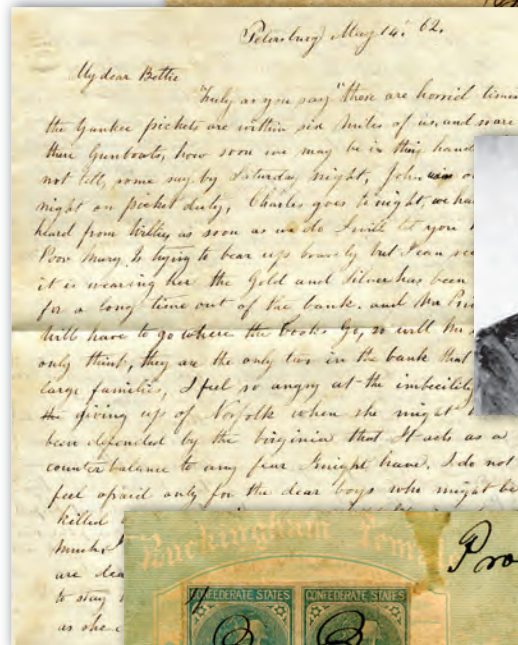 Petersburg May 14. 62.
My dear Bettie
Truly as you say "these are horrid times
the Yankee pickets are within six miles of us, and so are
their Gunboats, how soon we may be in they hand
not tell, some say by Saturday night, John was o
night on picket duty, Charles goes to night, we ha
heard from Willie as soon as we do I will let you
Poor Mary Is trying to bear up bravely but I can se
it is wearing her the Gold and Silver has been
for a long time out of the bank. and Mr
will have to go where the books Go, so will Mr
only think, they are the only two in the bank that
large families, I feel so angry at the imbecility
the giving up of Norfolk when she might
been defended by the Virginia that It acts as a
counterbalance to any fear I might have. I do not
feel afraid only for the dear boys who might be
killed
much. I
are dea
to stay
as she
Buckingham Fem
Pro
CONFEDERATE STATES
CONFEDERATE STATES